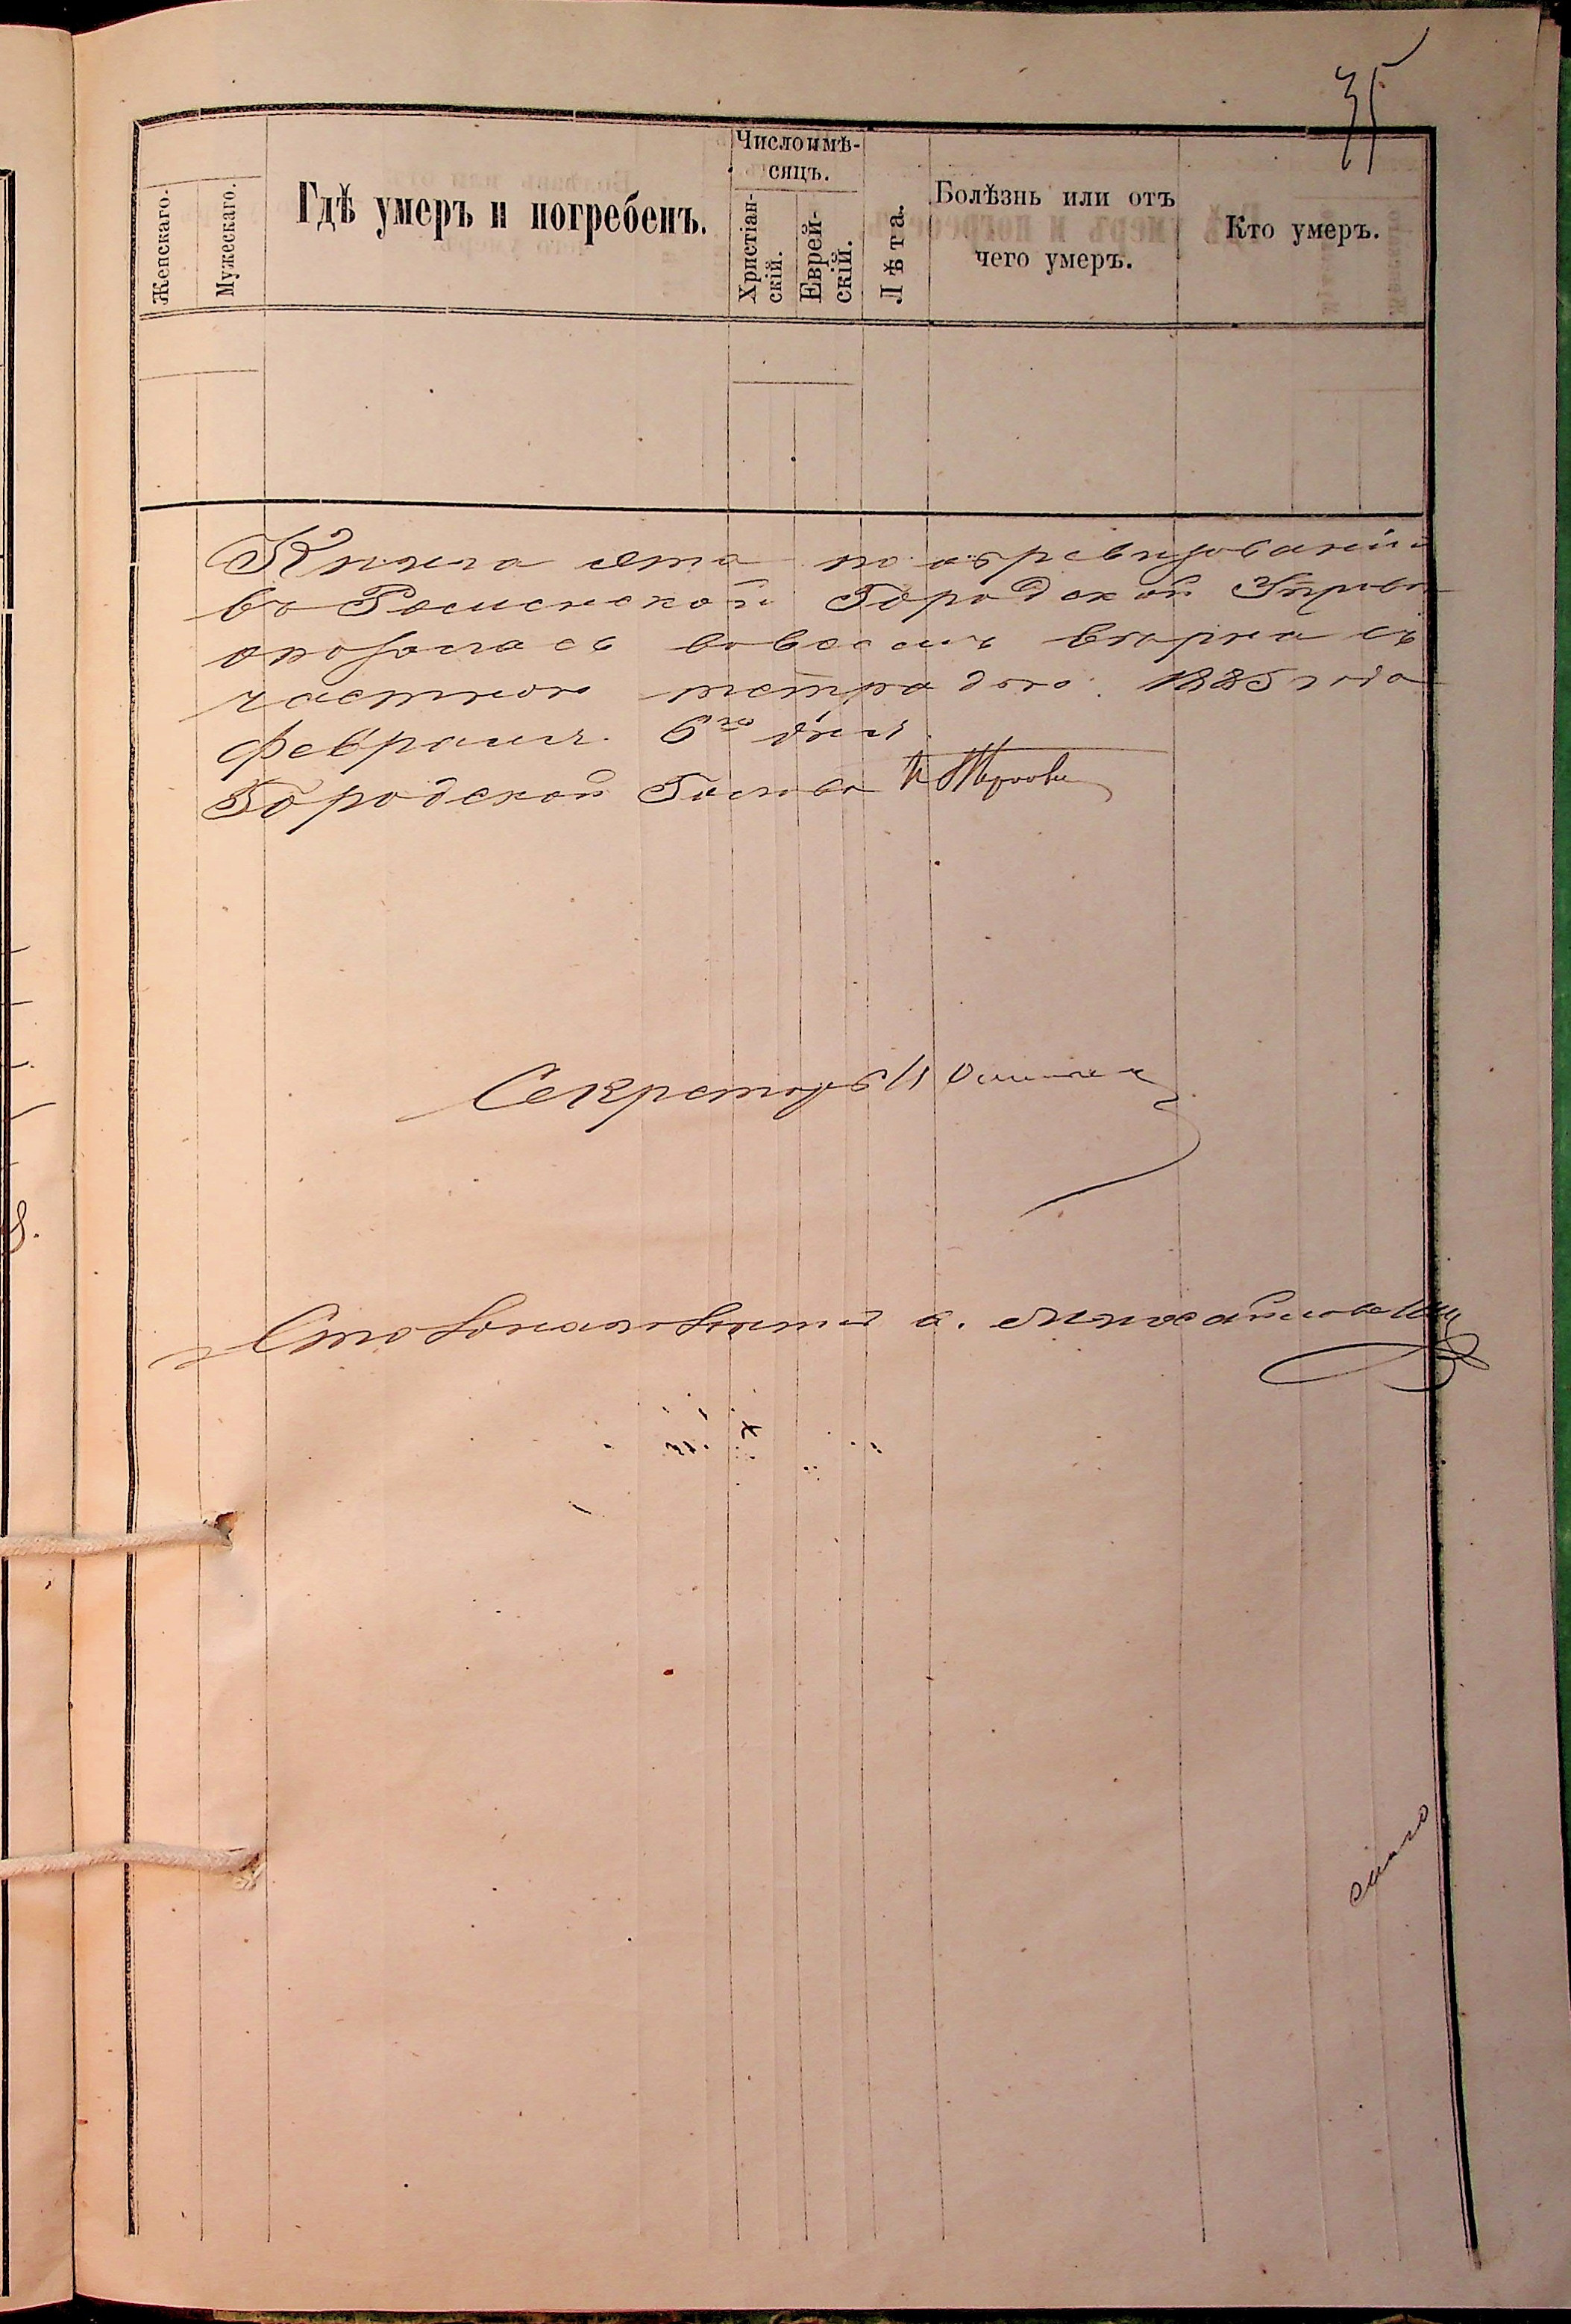 35
Числоимѣ-
сяцъ.
Женскаго.
Мужескаго.
Гдѣ умеръ и погребенъ.
Христіан-
скій.
Еврей-
скій.
Лѣта.
Болѣзнь или отъ
чего умеръ.
Кто умеръ.
Книга эта по обревизованіи
въ Городской Управѣ
оказалась вовсемъ вѣрна съ
частною тетрадью. 1885 года
февраля 6го дня.
Городской Голова
Секретарь
Столоначальникъ